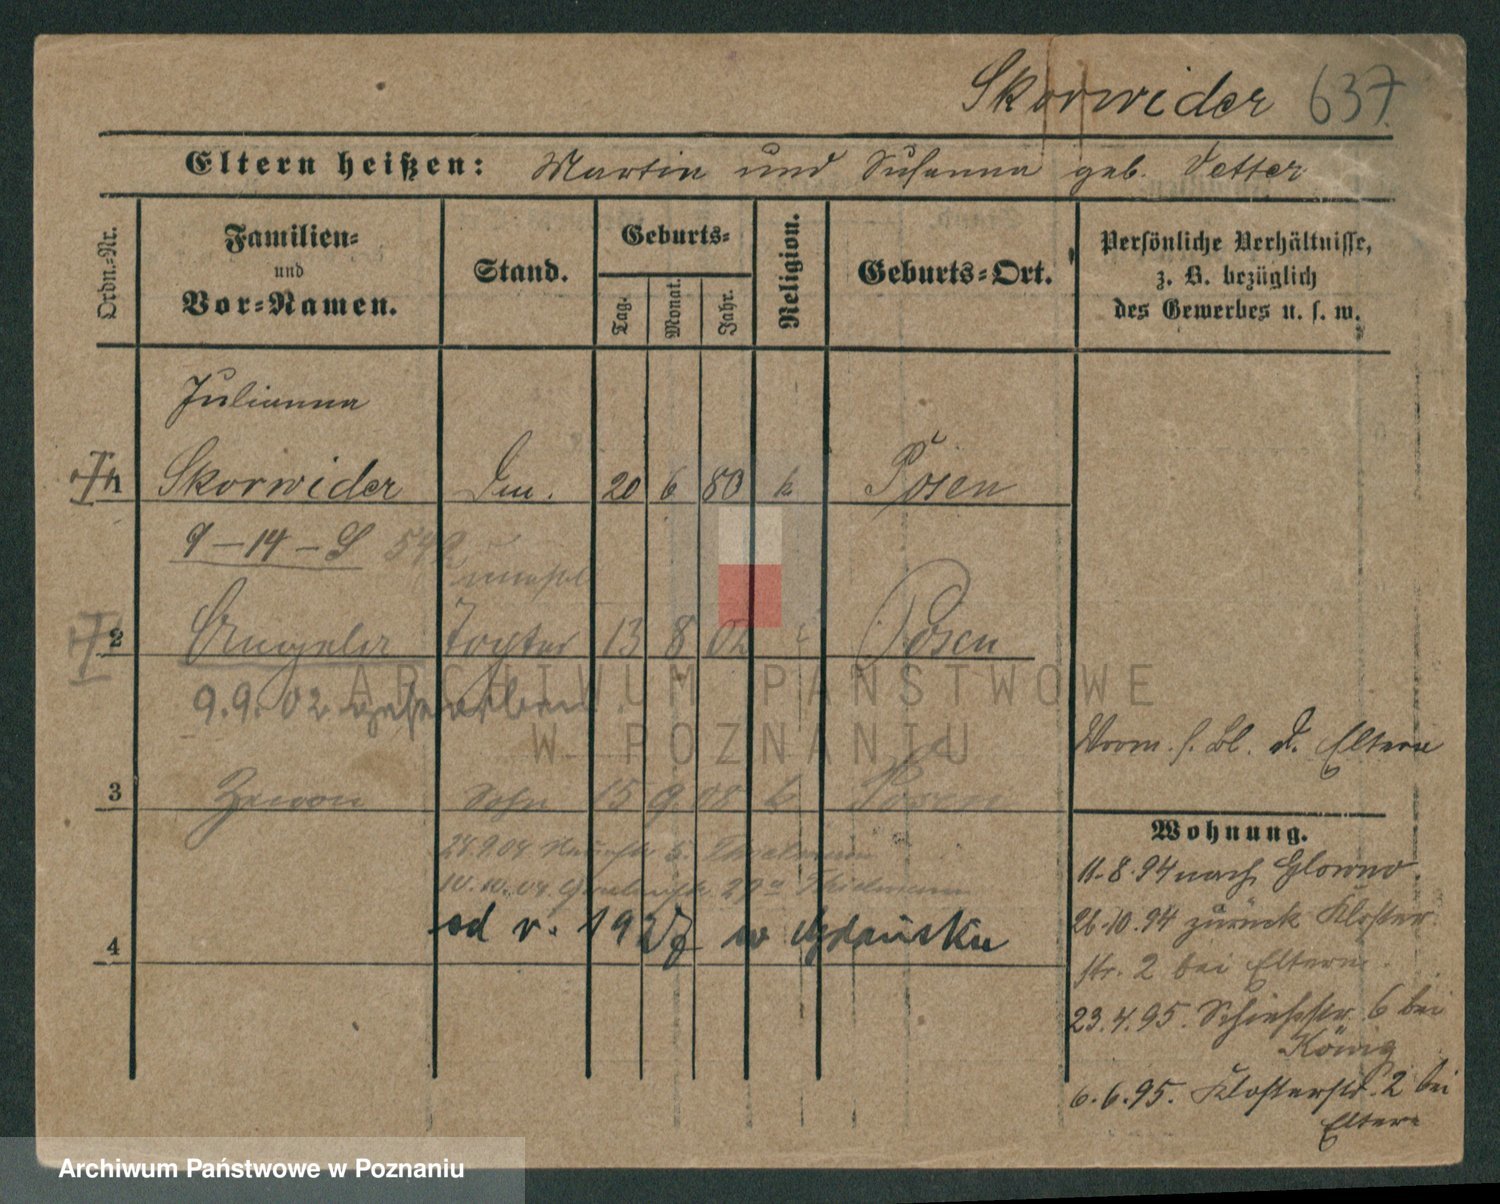 Skorwider 637.
Eltern heißen: Martin und Susanna geb. Vetter
Ordn.-Nr.
Familien-
und
Vor-Namen.
Stand.
Geburts-
Tag.
Monat.
Jahr.
Religion.
Geburts-Ort.
Persönliche Verhältnisse,
z. B. bezüglich
des Gewerbes u. s. w.
Julianna
1 Skorwider 20 6 80 k Posen
9-14-S 542
unehel
2 Angela Tochter 13 8 02 k Posen
9.9.02 gestorben
Vorm. s. Bl. d. Eltern
3 Zenon Sohn 15 9 08 k Posen
Wohnung.
11.8.94 nach Glowno
26.10.94 zurück Kloster
str. 2 bei Eltern.
23.4.95. Schiefsstr. 6 bei
König
6.6.95. Klosterstr. 2 bei
Eltern
10.10.08 29a Thielmann
4 od r. 1927 w Gdańsku
ARCHIWUM PAŃSTWOWE
W POZNANIU
Archiwum Państwowe w Poznaniu